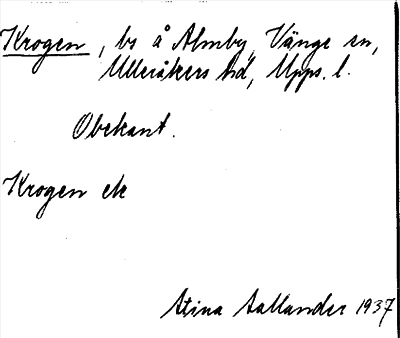 Krogen, bs å Almby, Vänge sn,
Ulleråkers hd, Upps. l.
Obekant.
Krogen
Stina Sallander 1937